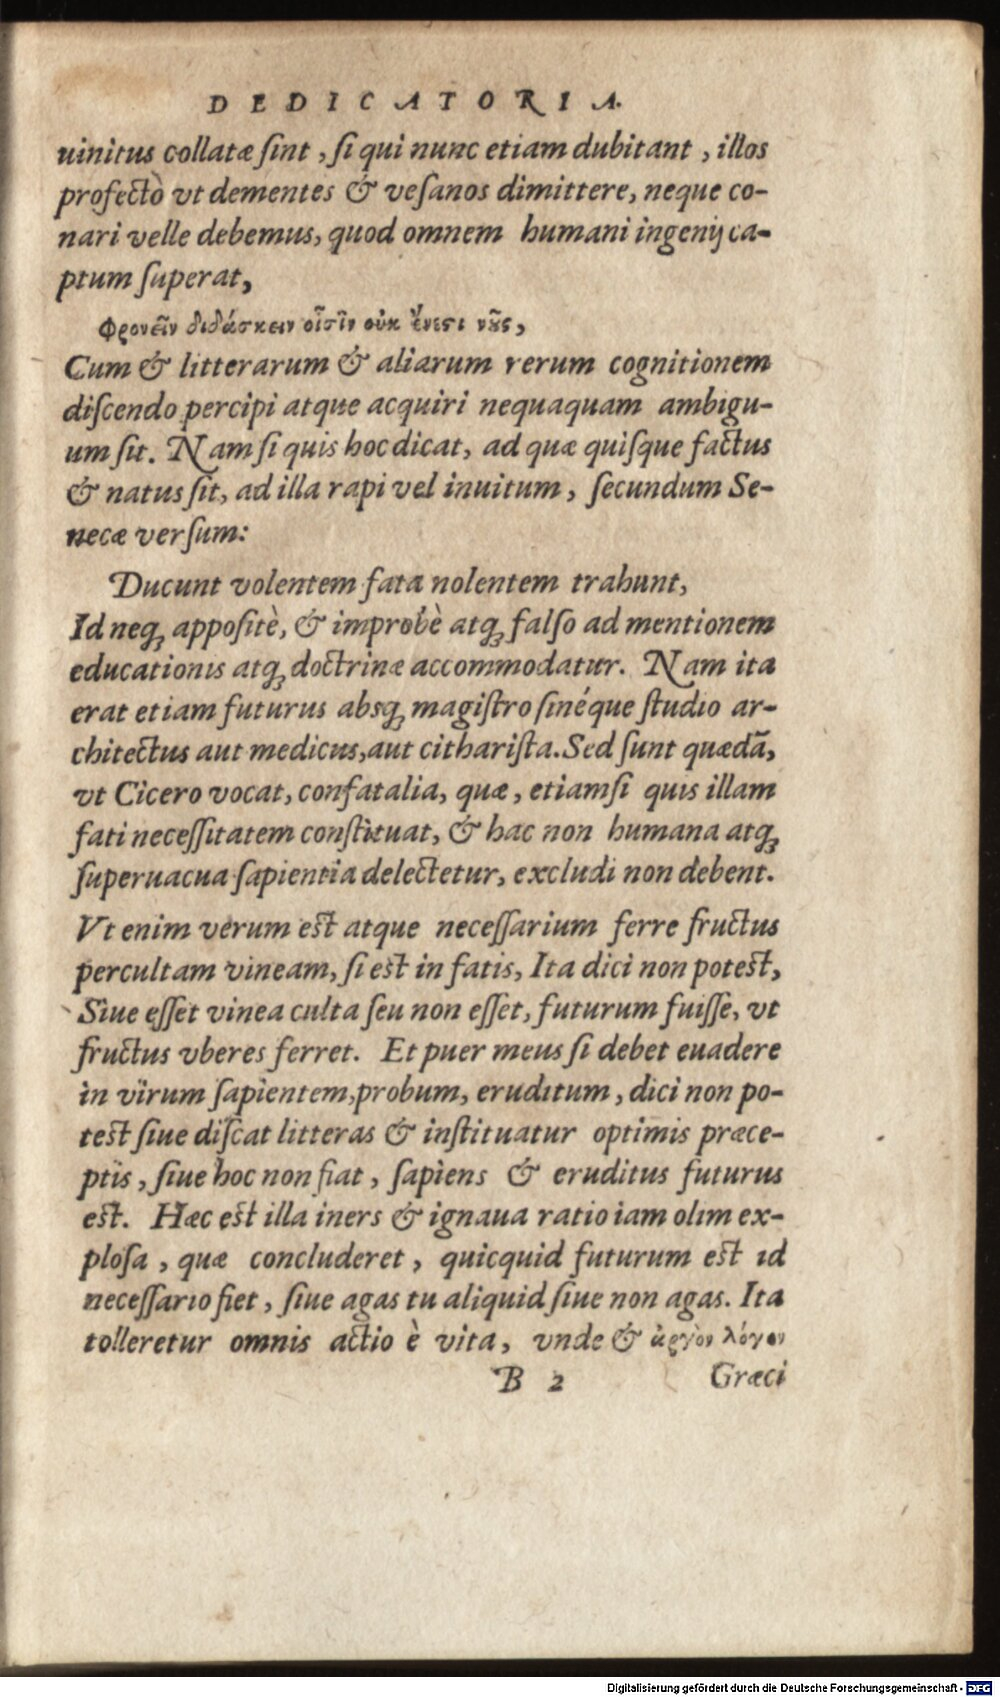 DEDICATORIA.
uinitus collatæ ſint, ſi qui nunc etiam dubitant, illos
profectò vt dementes & veſanos dimittere, neque co-
nari velle debemus, quod omnem humani ingenij ca-
ptum ſuperat,
Φρονεῖν διδάσκειν οἷσιν οὐκ ἔνεστι νοῦς,
Cum & litterarum & aliarum rerum cognitionem
diſcendo percipi atque acquiri nequaquam ambigu-
um ſit. Nam ſi quis hoc dicat, ad quæ quiſque factus
& natus ſit, ad illa rapi vel inuitum, ſecundum Se-
necæ verſum:
Ducunt volentem fata nolentem trahunt,
Id neq; appoſitè, & improbè atq; falſo ad mentionem
educationis atq; doctrinæ accommodatur. Nam ita
erat etiam futurus absq; magiſtro ſinéque ſtudio ar-
chitectus aut medicus, aut cithariſta. Sed ſunt quædã,
vt Cicero vocat, confatalia, quæ, etiamſi quis illam
fati neceſſitatem conſtituat, & hac non humana atq;
ſuperuacua ſapientia delectetur, excludi non debent.
Vt enim verum est atque neceſſarium ferre fructus
percultam vineam, ſi est in fatis, Ita dici non potest,
Siue eſſet vinea culta ſeu non eſſet, futurum fuiſſe, vt
fructus vberes ferret. Et puer meus ſi debet euadere
in virum ſapientem, probum, eruditum, dici non po-
test ſiue diſcat litteras & inſtituatur optimis præce-
ptis, ſiue hoc non fiat, ſapiens & eruditus futurus
est. Hæc est illa iners & ignaua ratio iam olim ex-
ploſa, quæ concluderet, quicquid futurum est id
neceſſario fiet, ſiue agas tu aliquid ſiue non agas. Ita
tolleretur omnis actio è vita, vnde & ἀργὸν λόγον
B 2 Græci
Digitalisierung gefördert durch die Deutsche Forschungsgemeinschaft - DFG